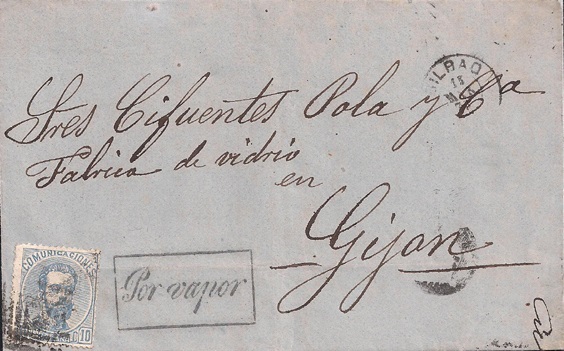 BILBAO
13
Sres Cifuentes Pola y Cª
Fabrica de vidrio
en
Gijon
COMUNICACIONES
10
Por vapor